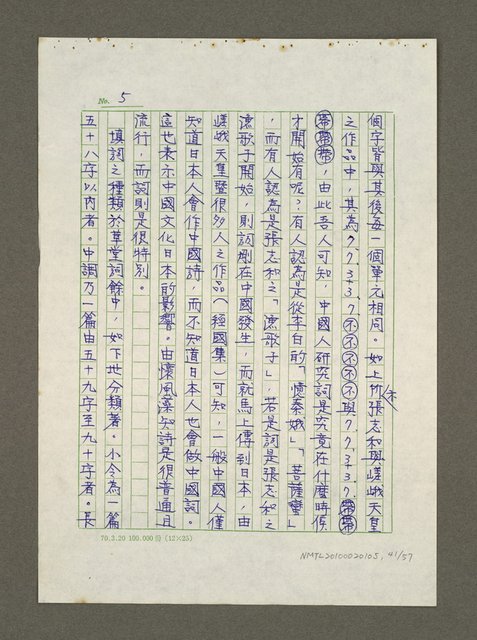 No. 5
個字皆與其後每一個單元相同。如上所示張志和與嵯峨天皇
之作品中，其為7.7.3+3.7不不不不不與7.7.3+3.7.帶帶
帶帶帶，由此吾人可知，中國人研究詞是究竟在什麼時候
才開始有呢？有人認為是從李白的「憶秦娥」「菩薩蠻」
，而有人認為是張志和之「漁歌子」，若是詞是張志和之
漁歌子開始，則詞剛在中國發生，而就馬上傳到日本，由
嵯峨天皇暨很多人之作品（經國集）可知，一般中國人僅
知道日本人會作中國詩，而不知道日本人也會做中國詞。
這也表示中國文化日本的影響。由懷風藻知詩是很普通且
流行，而詞則是很特別。
填詞之種類於草堂詞餘中，如下地分類著。小令為一篇
五十八字以內者。中調乃一篇由五十九字至九十字者。長
70.3.20 100.000份 (12×25)
NMTL20100020105, 41/57